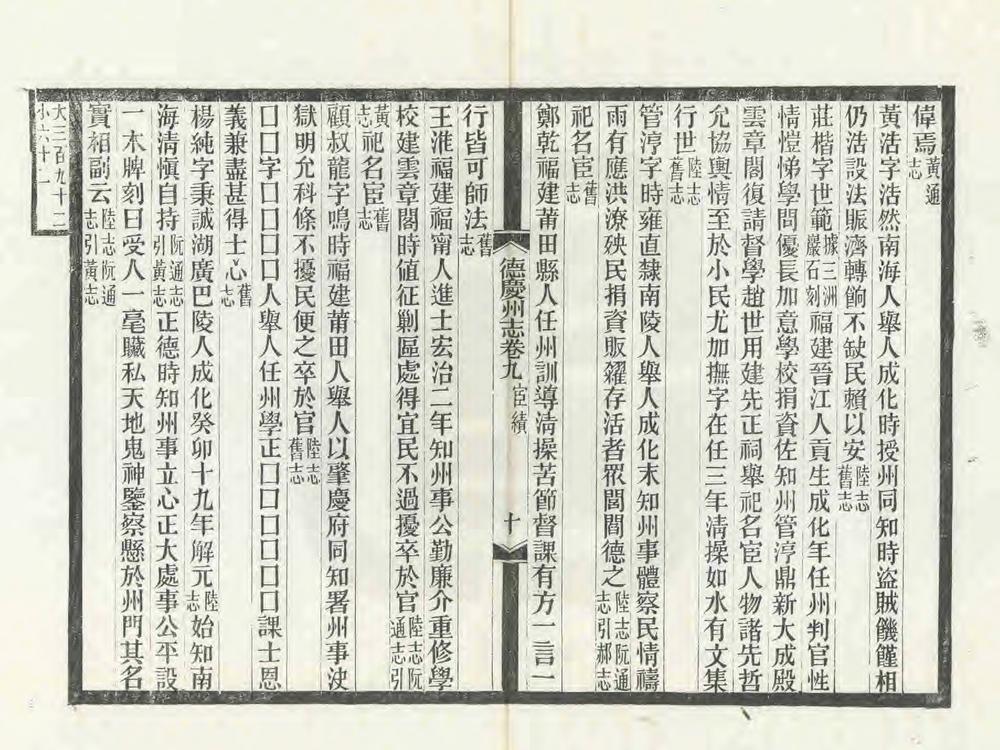 偉焉黃通志
黃浩字浩然南海人舉人成化時授州同知時盜賊饑饉相
仍浩設法賑濟轉餉不缺民賴以安陸志舊志
莊楷字世範據三洲巖石刻福建晉江人貢生成化年任州判官性
情愷悌學問優長加意學校捐資佐知州管渟鼎新大成殿
雲章閣復請督學趙世用建先正祠舉祀名宦人物諸先哲
允協輿情至於小民尤加撫字在任三年清操如水有文集
行世陸志舊志
管渟字時雍直隸南陵人舉人成化末知州事體察民情禱
雨有應洪潦殃民捐資販糴存活者眾閭閻德之陸志阮通志引郝志
祀名宦舊志
鄭乾福建莆田縣人任州訓導清操苦節督課有方一言一
德慶州志卷九 宦績 十
行皆可師法舊志
王淮福建福甯人進士宏治二年知州事公勤廉介重修學
校建雲章閣時值征剿區處得宜民不過擾卒於官陸志阮通志引
黃志祀名宦舊志
顧叔龍字鳴時福建莆田人舉人以肇慶府同知署州事決
獄明允科條不擾民便之卒於官陸志舊志
囗囗字囗囗囗囗人舉人任州學正囗囗囗囗囗囗課士恩
義兼盡甚得士心舊志
楊純字秉誠湖廣巴陵人成化癸卯十九年解元陸志始知南
海清愼自持阮通志引黃志正德時知州事立心正大處事公平設
一木牌刻曰受人一毫贓私天地鬼神鑒察懸於州門其名
實相副云陸志阮通志引黃志
大三百九十二
小六十二